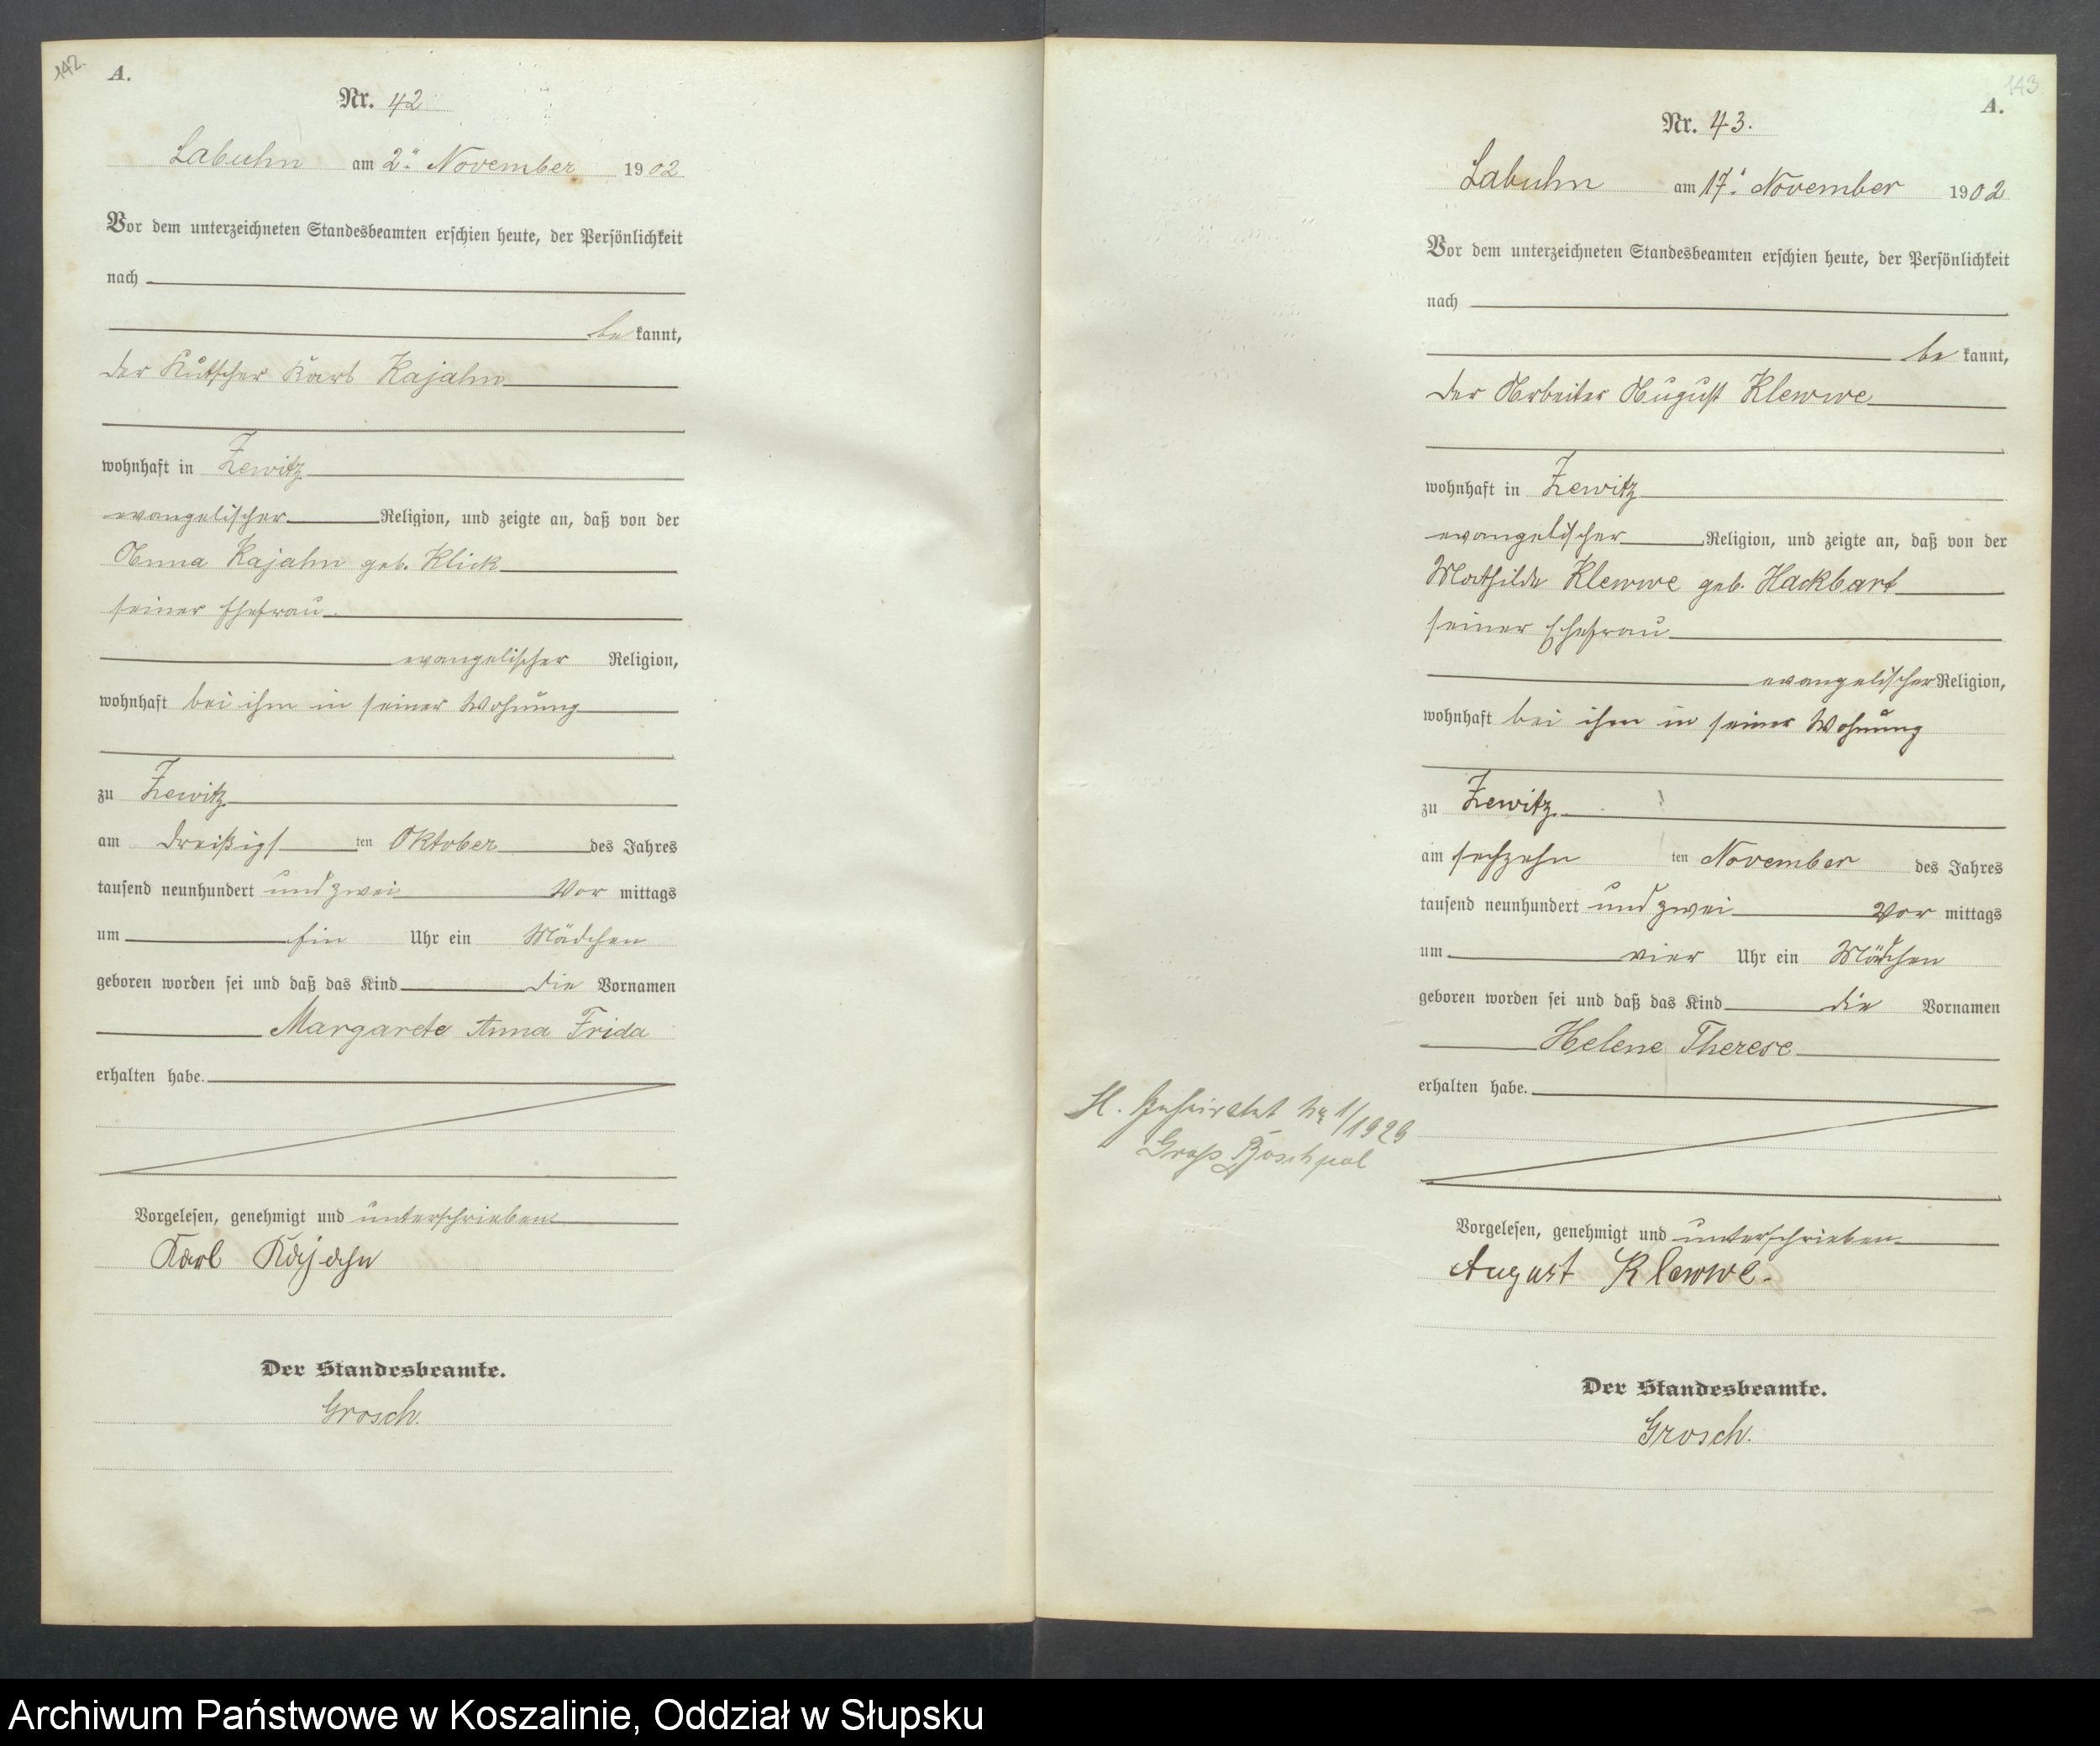 142.
A.
Nr. 42
Labuhn am 2ten November 1902
Vor dem unterzeichneten Standesbeamten erschien heute, der Persönlichkeit
nach
be kannt,
der Kutscher Karl Kajahn
wohnhaft in Zewitz
evangelischer Religion, und zeigte an, daß von der
Anna Kajahn geb. Klick
seiner Ehefrau
evangelischer Religion,
wohnhaft bei ihm in seiner Wohnung
zu Zewitz
am dreißigsten Oktober des Jahres
tausend neunhundert und zwei Vor mittags
um ein Uhr ein Mädchen
geboren worden sei und daß das Kind die Vornamen
Margarete Anna Frida
erhalten habe.
Vorgelesen, genehmigt und unterschrieben
Karl Kajahn
Der Standesbeamte.
Grosch.
143
A.
Nr. 43.
Labuhn am 17. November 1902
Vor dem unterzeichneten Standesbeamten erschien heute, der Persönlichkeit
nach
be kannt,
der Arbeiter August Klewwe
wohnhaft in Zewitz
evangelischer Religion, und zeigte an, daß von der
Mathilde Klewwe geb. Hackbart
seiner Ehefrau
evangelischer Religion,
wohnhaft bei ihm in seiner Wohnung
zu Zewitz
am sechzehn ten November des Jahres
tausend neunhundert und zwei Vor mittags
um vier Uhr ein Mädchen
geboren worden sei und daß das Kind die Vornamen
Helene Therese
erhalten habe.
H. Geheiratet Nr 1/1929
Groß Boschpol
Vorgelesen, genehmigt und unterschrieben
August Klewwe.
Der Standesbeamte.
Grosch.
Archiwum Państwowe w Koszalinie, Oddział w Słupsku